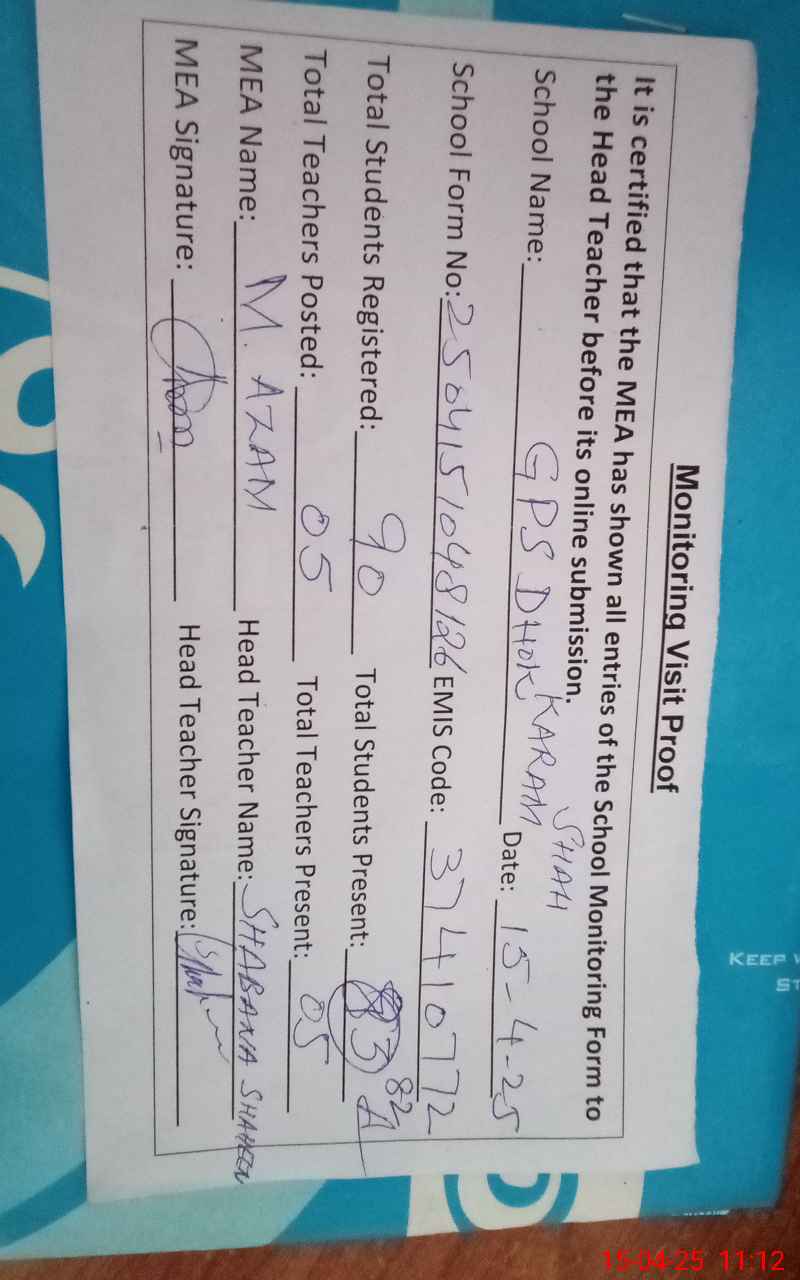 Monitoring Visit Proof
It is certified that the MEA has shown all entries of the School Monitoring Form to
the Head Teacher before its online submission.
School Name: GPS DHOK KARAM SHAH Date: 15-4-25
School Form No: 2504151048126 EMIS Code: 37410772
Total Students Registered: 90 Total Students Present: 83 82
Total Teachers Posted: 05 Total Teachers Present: 05
MEA Name: M. AZAM Head Teacher Name: SHABANA SHAHEEN
MEA Signature: Head Teacher Signature:
KEEP
ST
15-04-25 11:12